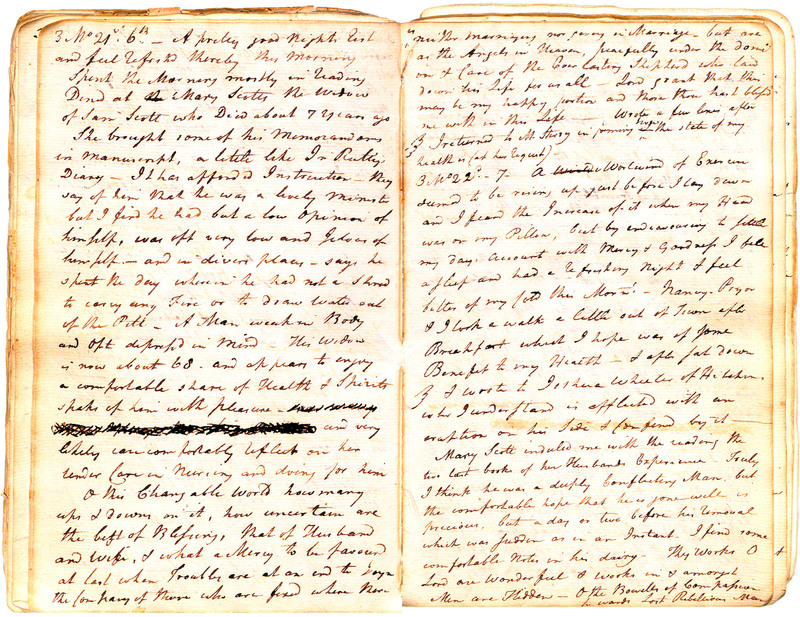 3 Mo 21st. 6th — A pretty good Nights Rest
and feel refreshd thereby this Morning
Spent the Morning mostly in reading
Dined at Mary Scotts the Widow
of Sam Scott who Died about 7 years ago
She brought some of his Memorandams
in manuscript, a little like Jn Rutty's
Diary — It has afforded Instruction — they
say of him that he was a lively minister
but I find he had but a low Opinion of
himself, was oft very low and Jelous of
himself — and in divers places — says he
spent the day wherein he had not a Shred
to carry any Fire or to draw water out
of the Pitt — A Man weak in Body
and Oft depressd in Mind — His Widow
is now about 68. and appears to enjoy
a comfortable share of Health & Spirits
speaks of him with pleasure —
and very
likely can comfortably reflect on her
tender Care in Nursing and doing for him
O this Changable World how many
ups & downs in it, how uncertain are
the best of Blessings, that of Husband
and Wife, & what a Mercy to be favour'd
at last when Troubles are at an end to joyn
the Company of those who are fixed where there
neither marrying nor giving in Marriage — but are
as the Angels in Heaven, peacefully under the domi
on & Care of the Everlasting Shepherd who laid
down his Life for us all — Lord grant that this
may be my happy portion and those thou hast blessd
me with in this Life — Wrote a few lines after
I returned to M Story informing the state of my
health is (at his request) —
3 Mo 22d. — 7 — A Worlwind of Exercise
seemed to be rising up just before I lay down
and I feard the Increase of it when my Head
was on my Pillow, but by endeavouring to settle
my days account with Mercy & Goodness I fell
asleep and had a refreshing Night & feel
better of my Cold this Morng. — Nancy Pryor
& I took a walk a little out of Town after
Breakfast which I hope was of some
Benefit to my Health — & after sat down
& I wrote to Joshua Wheeler of Hitchin
who I understand is afflicted with an
eruption on his Side & Confined by it
Mary Scott indulted me with the reading the
two last books of her Husbands Experience — Truly
I think he was a deeply Conflicting Man, but
the comfortable hope that he is gone well is
precious, but a day or two before his removal
which was sudden as in an Instant. I find some
comfortable Notes in his dairy — Thy Works O
Lord are Wonderful & works in & amongst
Men are Hidden — O the Bowells of Compassion
towards Lost Rebellious Man